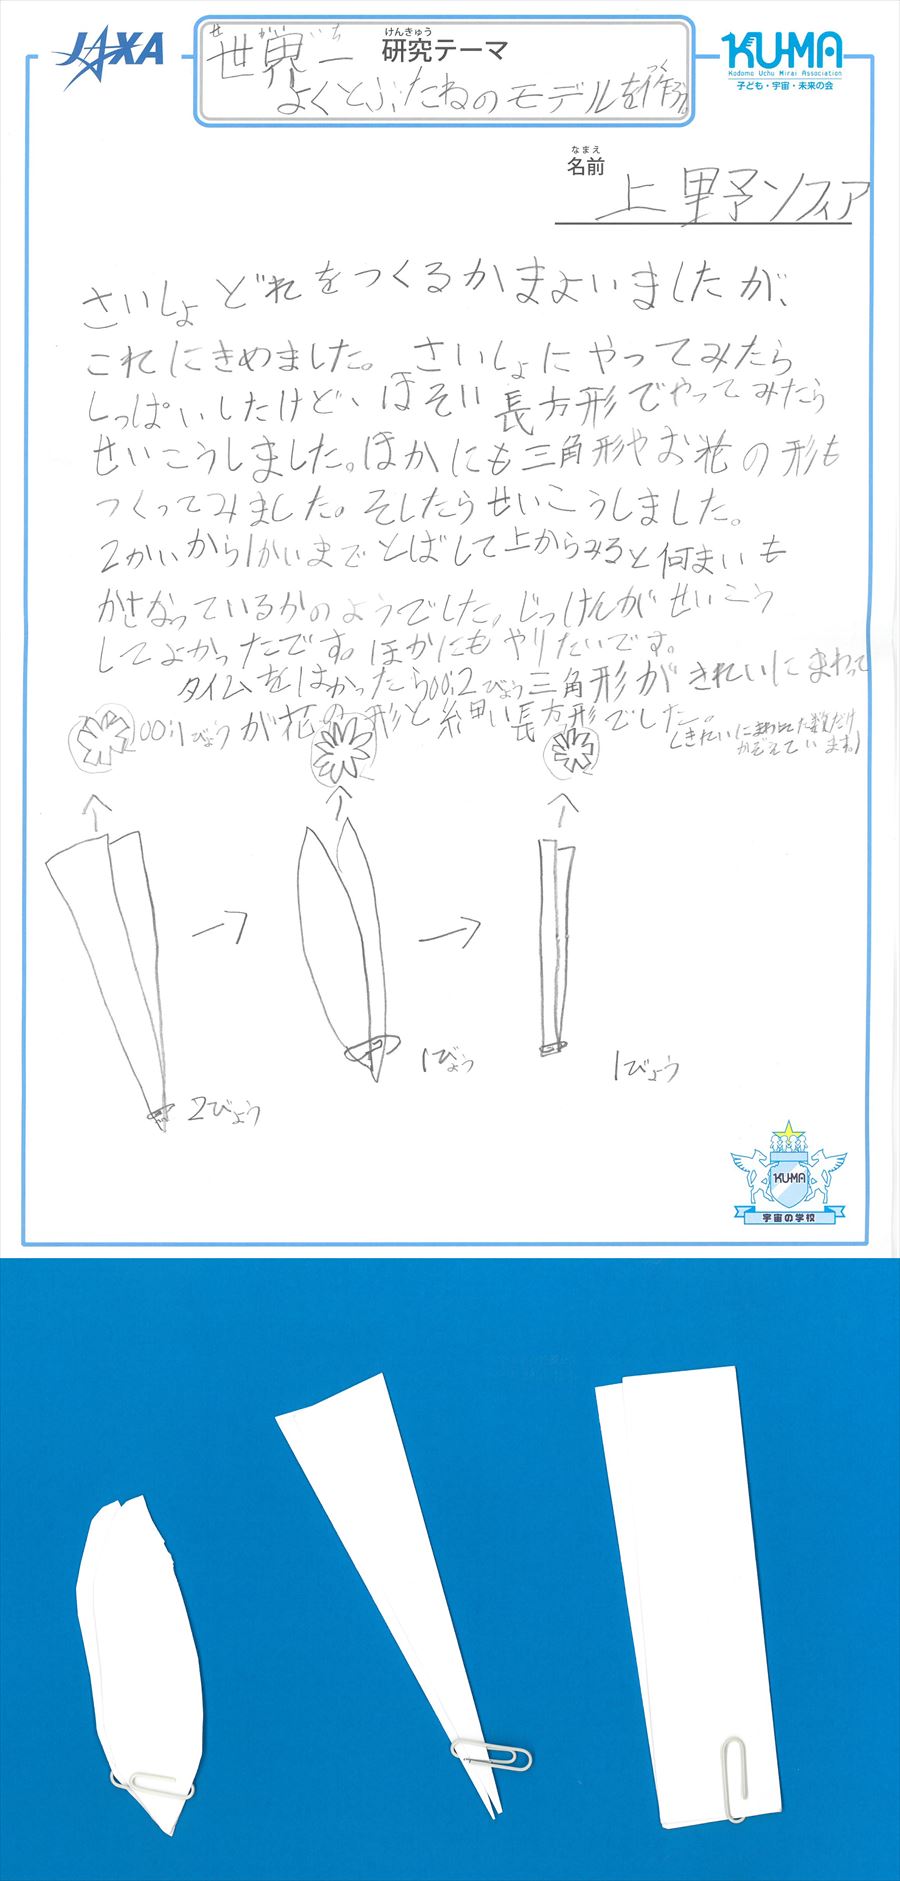 JAXA
せかいいち
世界一
けんきゅう
研究テーマ
よくとぶたねのモデルを作ろう
KU-MA
Kodomo Uchu Mirai Association
子ども・宇宙・未来の会
なまえ
名前
上野ソフィア
さいしょどれをつくるかまよいましたが、
これにきめました。さいしょにやってみたら
しっぱいしたけど、ほそい長方形でやってみたら
せいこうしました。ほかにも三角形やお花の形も
つくってみました。そしたらせいこうしました。
2かいから1かいまでとばして上からみると何まいも
かさなっているかのようでした。じっけんがせいこう
してよかったです。ほかにもやりたいです。
タイムをはかったら00:2びょう三角形がきれいにまわって
00:1びょうが花の形と細い長方形でした。
(きれいにまわってた数だけ
かぞえています。)
2びょう
1びょう
1びょう
KU-MA
宇宙の学校